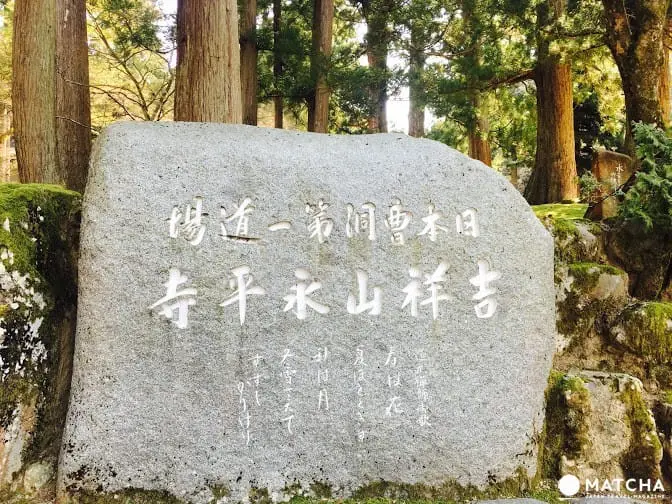 日本曹洞第一道場
吉祥山永平寺
道元禅師御歌
春は花
夏ほとゝきす
秋は月
冬雪さえて
すゝし
かりけり
MATCHA
JAPAN TRAVEL MAGAZINE